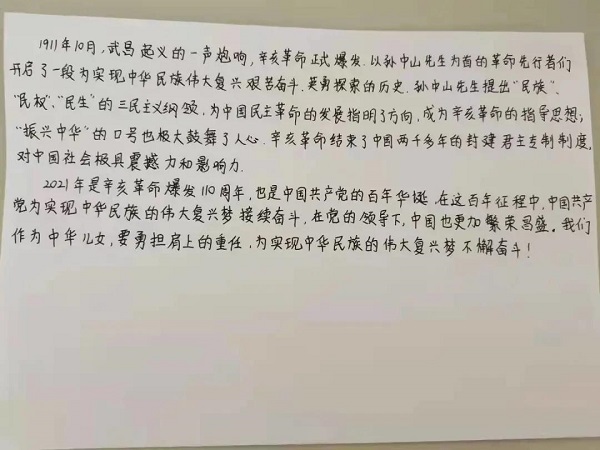 1911年10月,武昌起义的一声炮响,辛亥革命正式爆发.以孙中山先生为首的革命先行者们
开启了一段为实现中华民族伟大复兴艰苦奋斗.英勇探索的历史.孙中山先生提出"民族"、
"民权"、"民生"的三民主义纲领,为中国民主革命的发展指明了方向,成为辛亥革命的指导思想;
"振兴中华"的口号也极大鼓舞了人心.辛亥革命结束了中国两千多年的封建君主专制制度,
对中国社会极具震撼力和影响力.
2021年是辛亥革命爆发110周年,也是中国共产党的百年华诞.在这百年征程中,中国共产
党为实现中华民族的伟大复兴梦接续奋斗,在党的领导下,中国也更加繁荣昌盛。我们
作为中华儿女,要勇担肩上的重任,为实现中华民族的伟大复兴梦不懈奋斗!